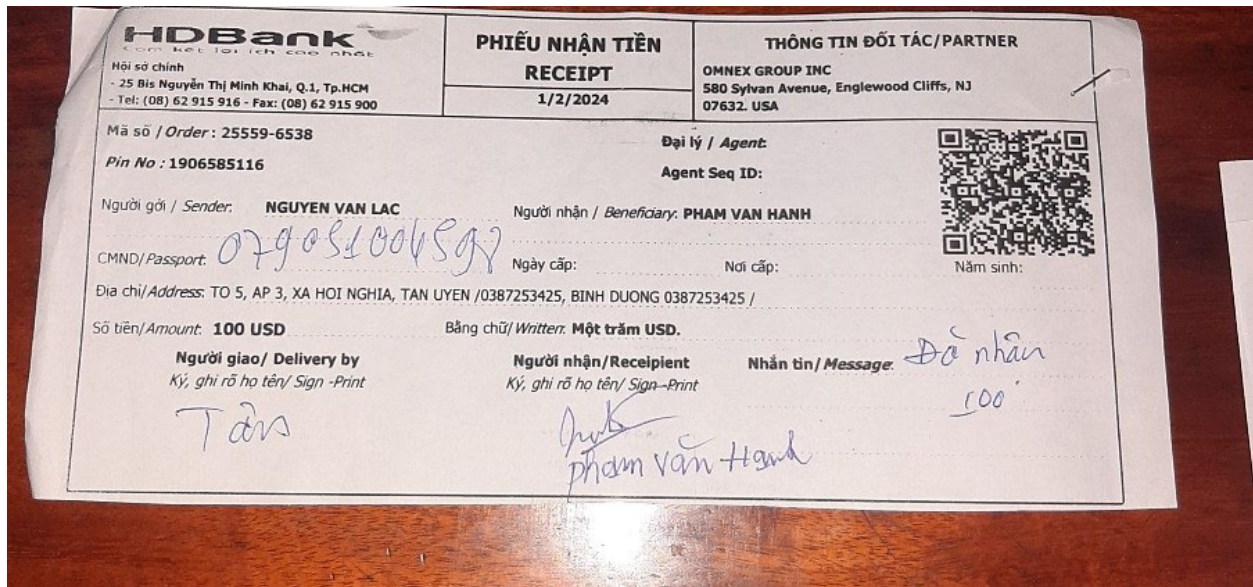 HDBank
Cam kết lợi ích cao nhất
Hội sở chính
- 25 Bis Nguyễn Thị Minh Khai, Q.1, Tp.HCM
- Tel: (08) 62 915 916 - Fax: (08) 62 915 900
PHIẾU NHẬN TIỀN
RECEIPT
1/2/2024
THÔNG TIN ĐỐI TÁC/PARTNER
OMNEX GROUP INC
580 Sylvan Avenue, Englewood Cliffs, NJ
07632. USA
Mã số / Order : 25559-6538
Đại lý / Agent:
Pin No : 1906585116
Agent Seq ID:
Người gởi / Sender: NGUYEN VAN LAC
Người nhận / Beneficiary: PHAM VAN HANH
CMND/Passport:
Ngày cấp:
Nơi cấp:
Năm sinh:
Địa chỉ/Address: TO 5, AP 3, XA HOI NGHIA, TAN UYEN /0387253425, BINH DUONG 0387253425 /
Số tiền/Amount: 100 USD
Bằng chữ/ Written: Một trăm USD.
Người giao/ Delivery by
Ký, ghi rõ họ tên/ Sign -Print
Người nhận/Receipient
Ký, ghi rõ họ tên/ Sign -Print
Nhắn tin/ Message: Đã nhân
100
Tân
Phạm Văn Hanh